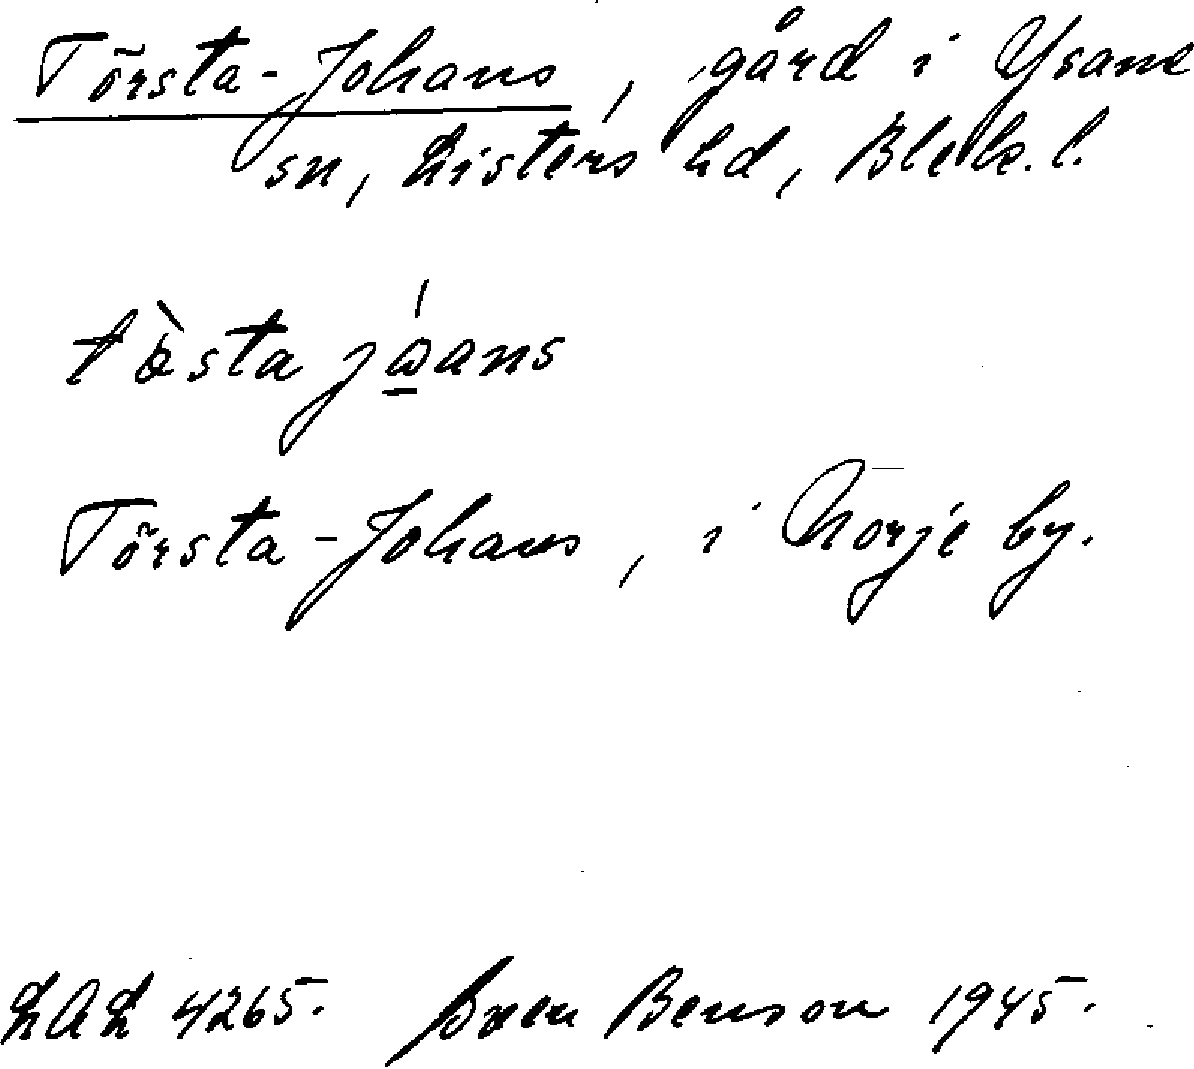 Törsta-Johans, gård i Ysane
sn, Listers hd, Blek. l.
tösta jåans
Törsta-Johans, i Norje by.
LAL 4265. Sven Benson 1945.